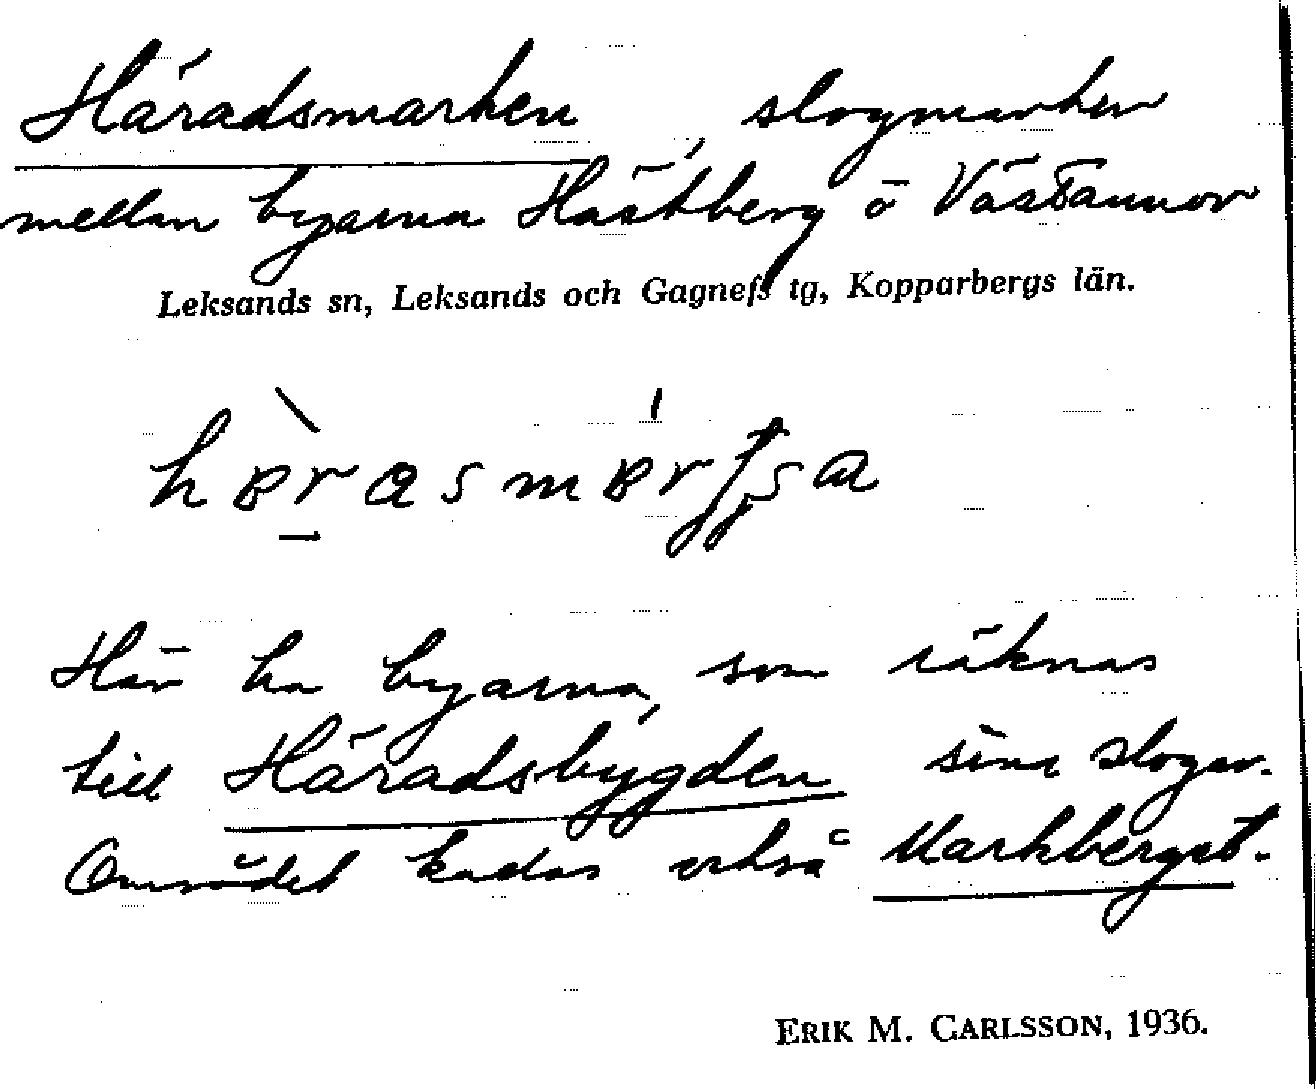 Häradsmarken, slogmarken
mellan byarna Hästberg o Västannor
Leksands sn, Leksands och Gagnefs tg, Kopparbergs län.
Här ha byarna, som räknas
till Häradsbygden sina slogar.
Området kallas också Markberget.
ERIK M. CARLSSON, 1936.